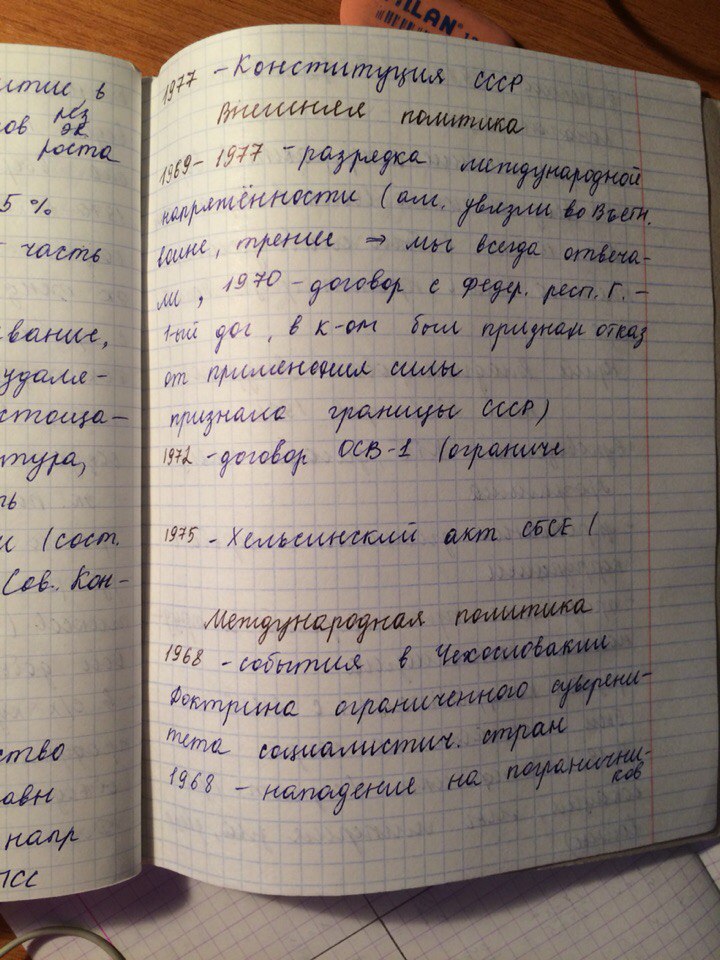 MILAN
итие в
ов нез
эк
роста
5 %
часть
вание,
удаля-
стоща-
тура,
ть
и (сост.
Сов. Кон-
ство
авн
напр
ПСС
1977 - Конституция СССР
Внешняя политика
1969-1977 - разрядка международной
напряжённости (ам. увязли во Вьетн.
воине, трение ⇒ мы всегда отвеча-
ли, 1970 - договор с Федер. респ. Г. -
1-ый дог, в к-ом был признан отказ
от применения силы
признала границы СССР)
1972 - договор ОСВ-1 (ограниче
1975 - Хельсинский акт СБСЕ (
Международная политика
1968 - события в Чехословакии
Доктрина ограниченного суверени-
тета социалистич. стран
1968 - нападение на погранични-
ков